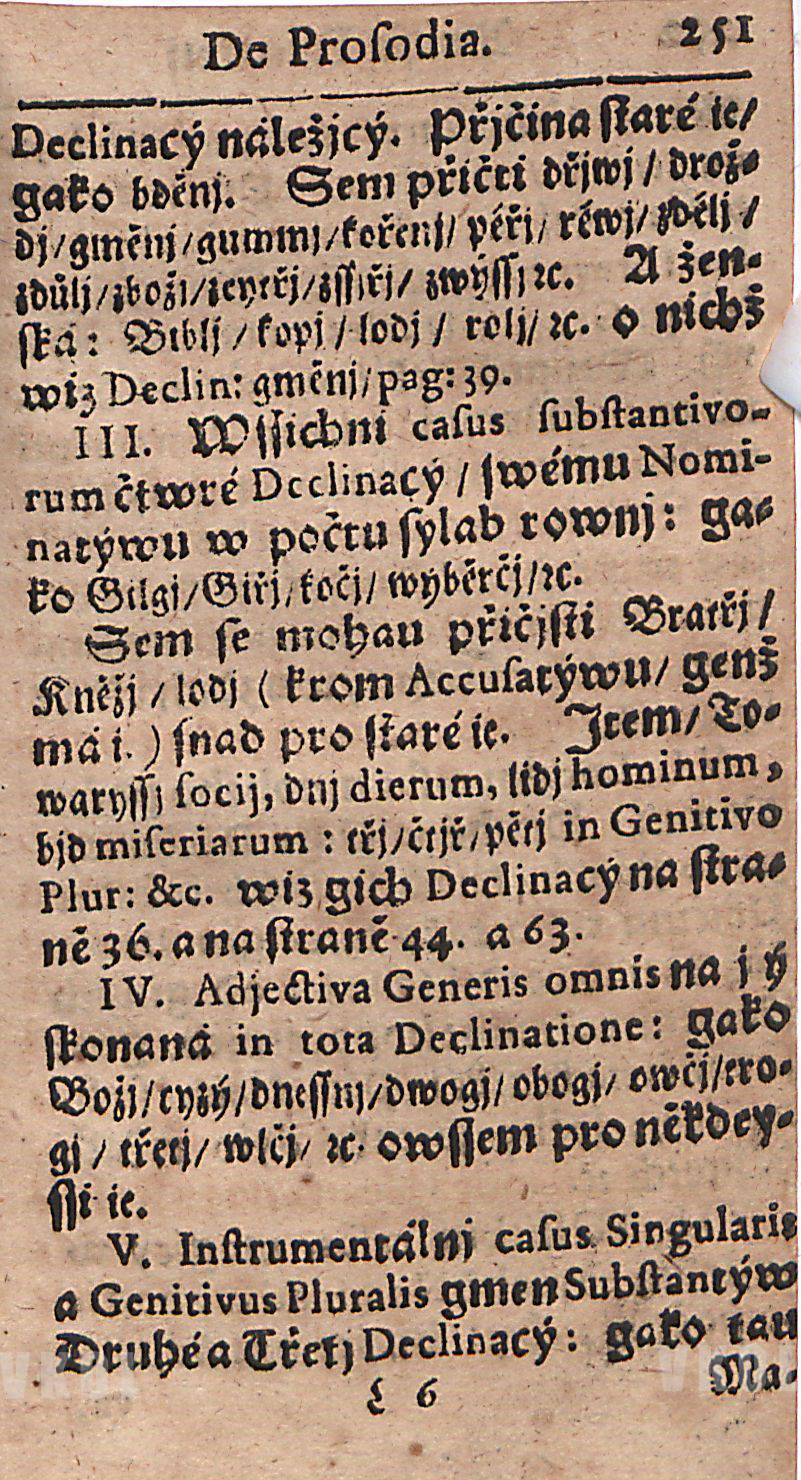 De Proſodia. 251
Declinacý náležjcý. Přjčina ſtaré ie/
gako bděnj. Sem přičti dřjwj / drož-
dj/gměnj/gummj/kořenj/ péřj/ réwj/ zdělj /
zdůlj/zbožj/zeytřj/zſſiřj/ zwýſſj ꝛc. A žen-
ſká: Biblj / kopj / lodj / rolj/ ꝛc. o nichž
wiz Declin: gměnj/pag: 39.
III. Wſſickni caſus ſubſtantivo-
rum čtwré Declinacý / ſwému Nomi-
natýwu w počtu ſylab rownj: ga-
ko Gilgj/Giřj/kočj/ wýběrčj/ꝛc.
Sem ſe mohau přičjſti Bratřj /
Kněžj / lodj ( krom Accuſatýwu/ genž
má i. ) ſnad pro ſtaré ie. Item/ To-
waryſſj ſocij, dnj dierum, lidj hominum,
bjd miſeriarum : třj/čtjř/pětj in Genitivo
Plur: &c. wiz gich Declinacý na ſtra-
ně 36. a na ſtraně 44. a 63.
IV. Adjectiva Generis omnis na j ý
ſkonaná in tota Declinatione: gako
Božj/cyzý/dneſſnj/dwogj/ obogj/ owčj/tro-
gj / třetj/ wlčj/ ꝛc. owſſem pro někdey-
ſſi ie.
V. Inſtrumentálnj caſus Singularis
a Genitivus Pluralis gmen Subſtantýw
Druhé a Třetj Declinacý: gako tau
Ma-
ξ 6